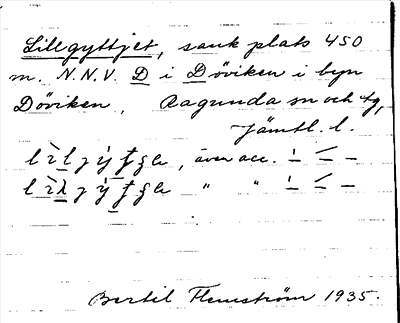 Lillgyttjet, sank plats 450
m. N.N.V. D i Döviken i byn
Döviken, Ragunda sn och tg,
Jämtl. l.
, även acc.
" "
Bertil Flemström 1935.